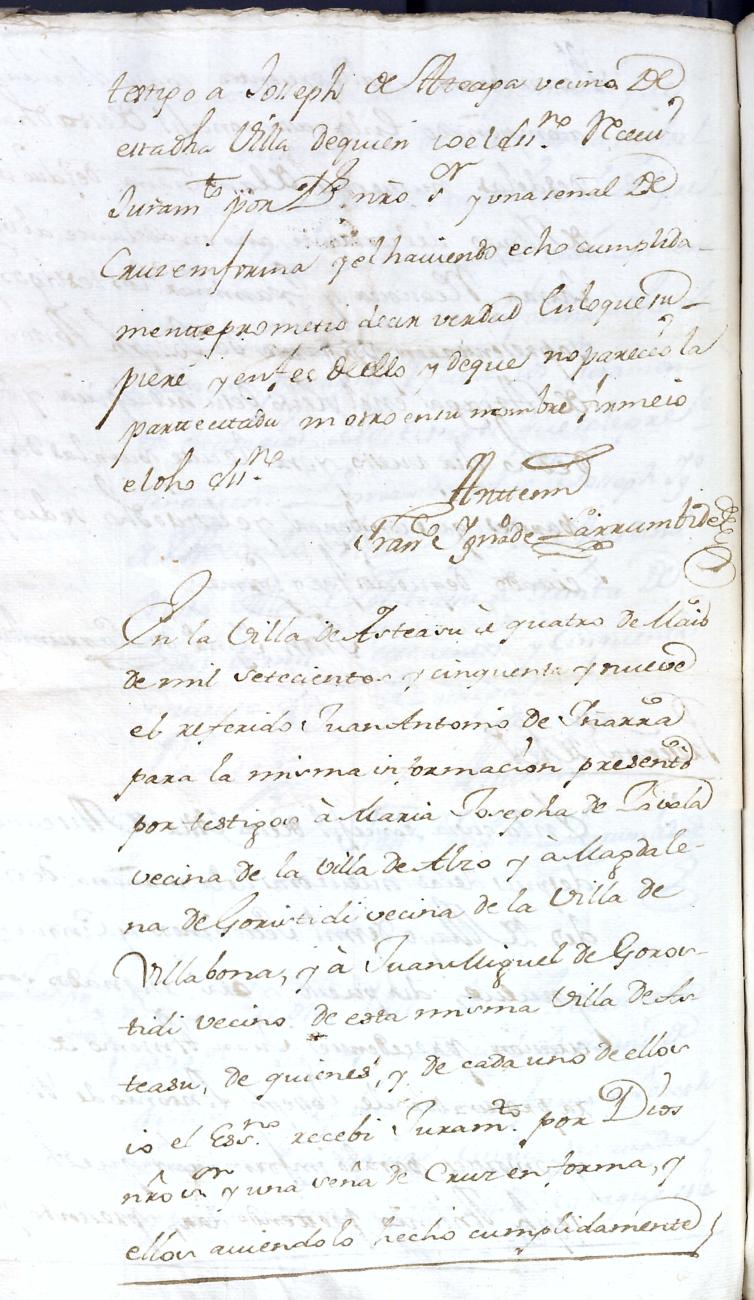 testigo a Joseph de Ateaga vecino De
esta dha Villa de quien io el ss.no Receui
Juram.to por D.s nro S.r y una señal De
Cruz en forma y el haviendo echo cumplida
mentte prometio decir verdad en lo que su
piere y en fee de ello y de que no parecio la
partte citada ni otro en su nombre firme io
el dho ss.no
Antte mi
Fran.co Ign.o de Larrumbide
En la Villa de Asteasu à quatro de Maio
de mil setecientos y cinquenta y nueve
el referido Juan Antonio de Yñarra
para la misma informacion presento
por testigos à Maria Josepha de Zavala
vecina de la Villa de Alzo y à Magdale-
na de Gorostidi vecina de la Villa de
Villabona, y à Juan Miguel de Goros-
tidi vecino de esta misma Villa de As
teasu, de quienes, y de cada uno de ellos
io el Ess.no recebi Juram.to por Dios
nro S.r y una señ.a de Cruz en forma, y
ellos aviendolo hecho cumplidamente